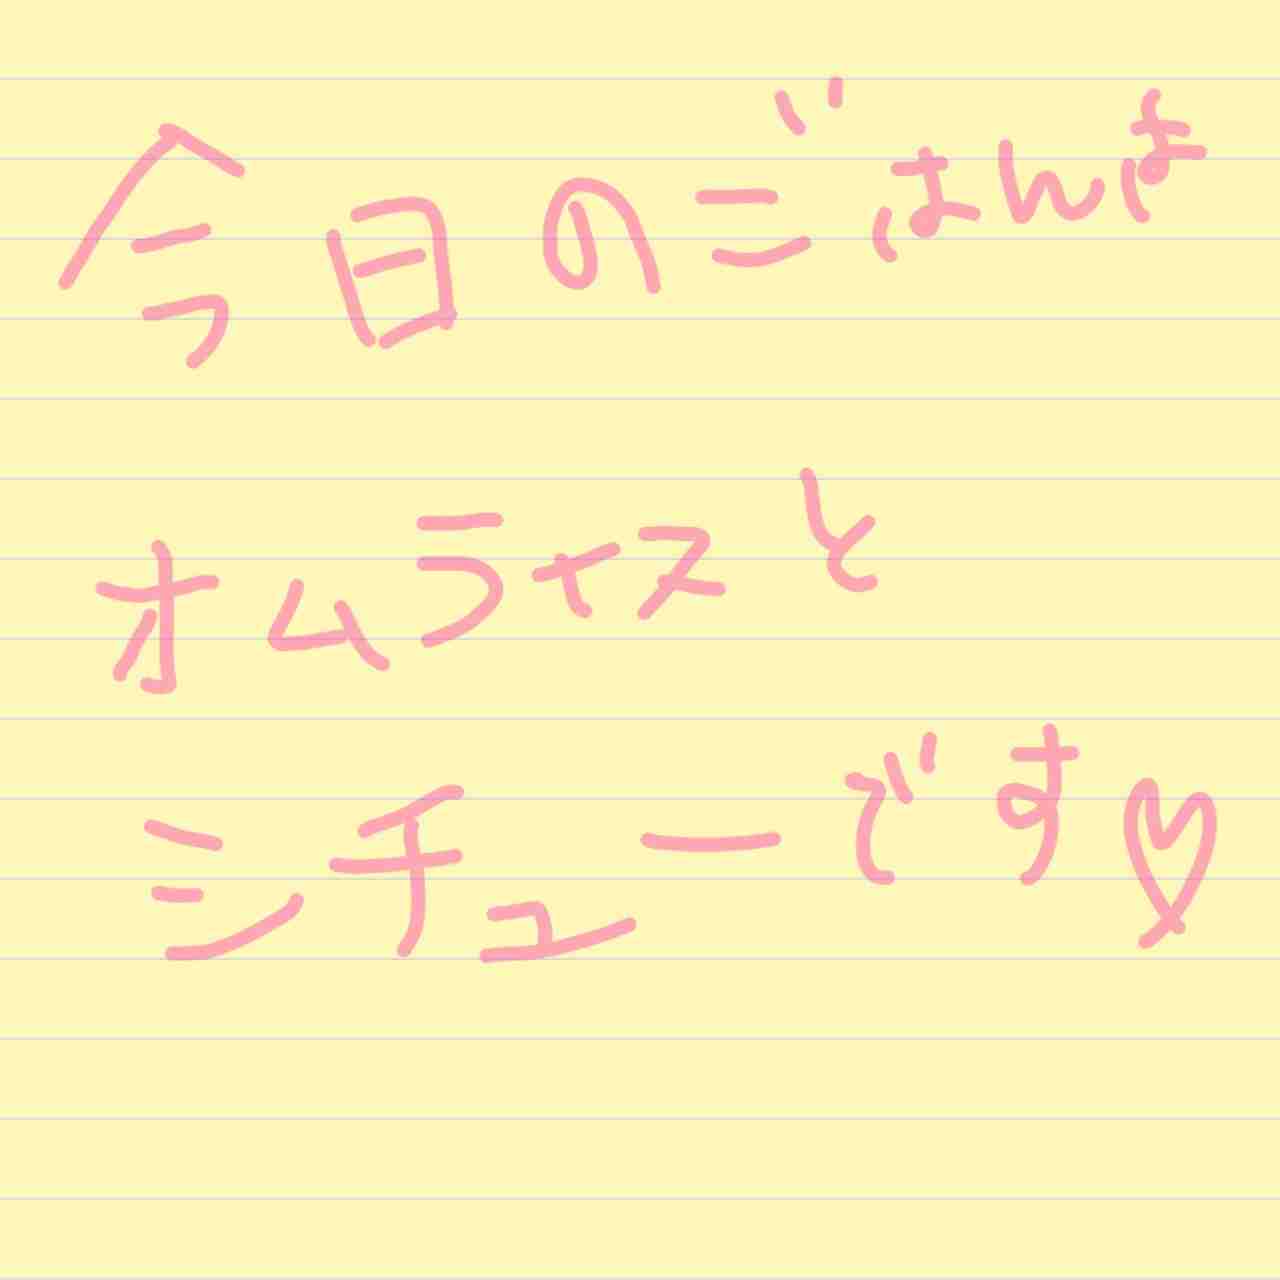 今日のごはんは
オムライスと
シチューです♡